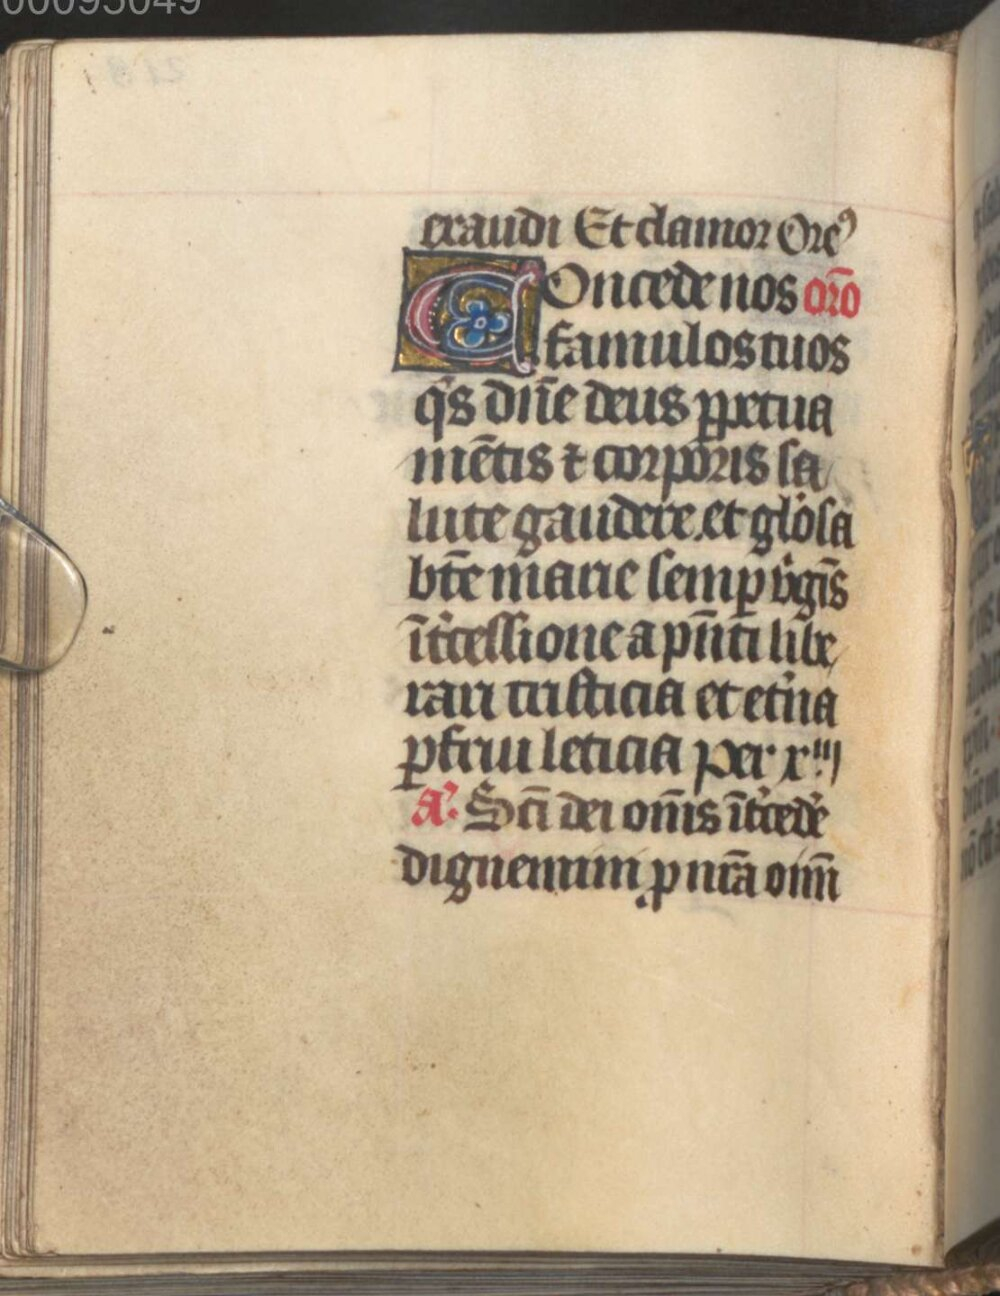 00095049
exaudi Et clamor Ore⁹
Oncede nos orō
famulos tuos
q̄s dn̄e deus ꝑpetua
mētis ⁊ corporis sa
lute gaudere. et gl̓osa
btē marie semꝑ v̓gīs
īt̓cessione a pn̄ti libe
rari tristicia et et̓na
ꝑfrui leticia per xᵐ
aᵃ. Scī dei om̄is īt̓cedē
dignemini ꝑ nrā oīm